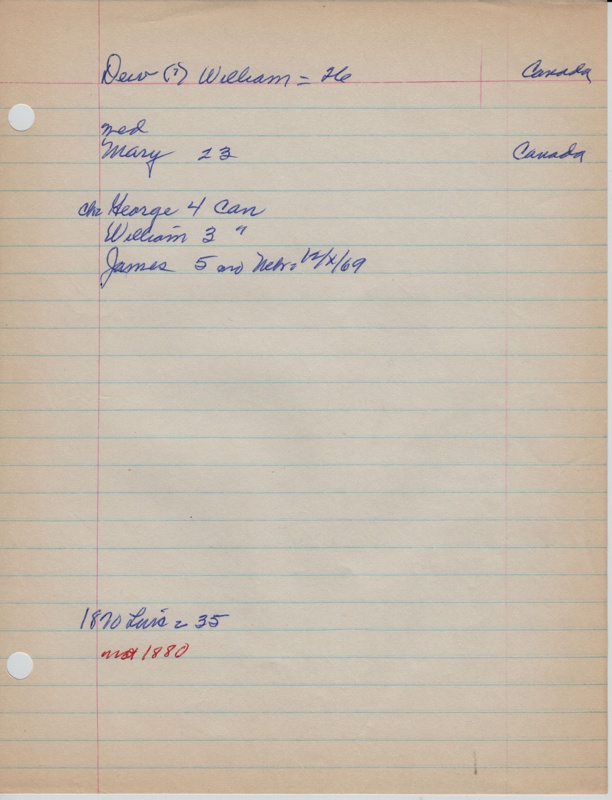 Dew (?) William = 26 Canada
med
Mary 23 Canada
chn George 4 Can
William 3 "
James 5 mo Nebr = 12/X/69
1870 Luis = 35
not 1880